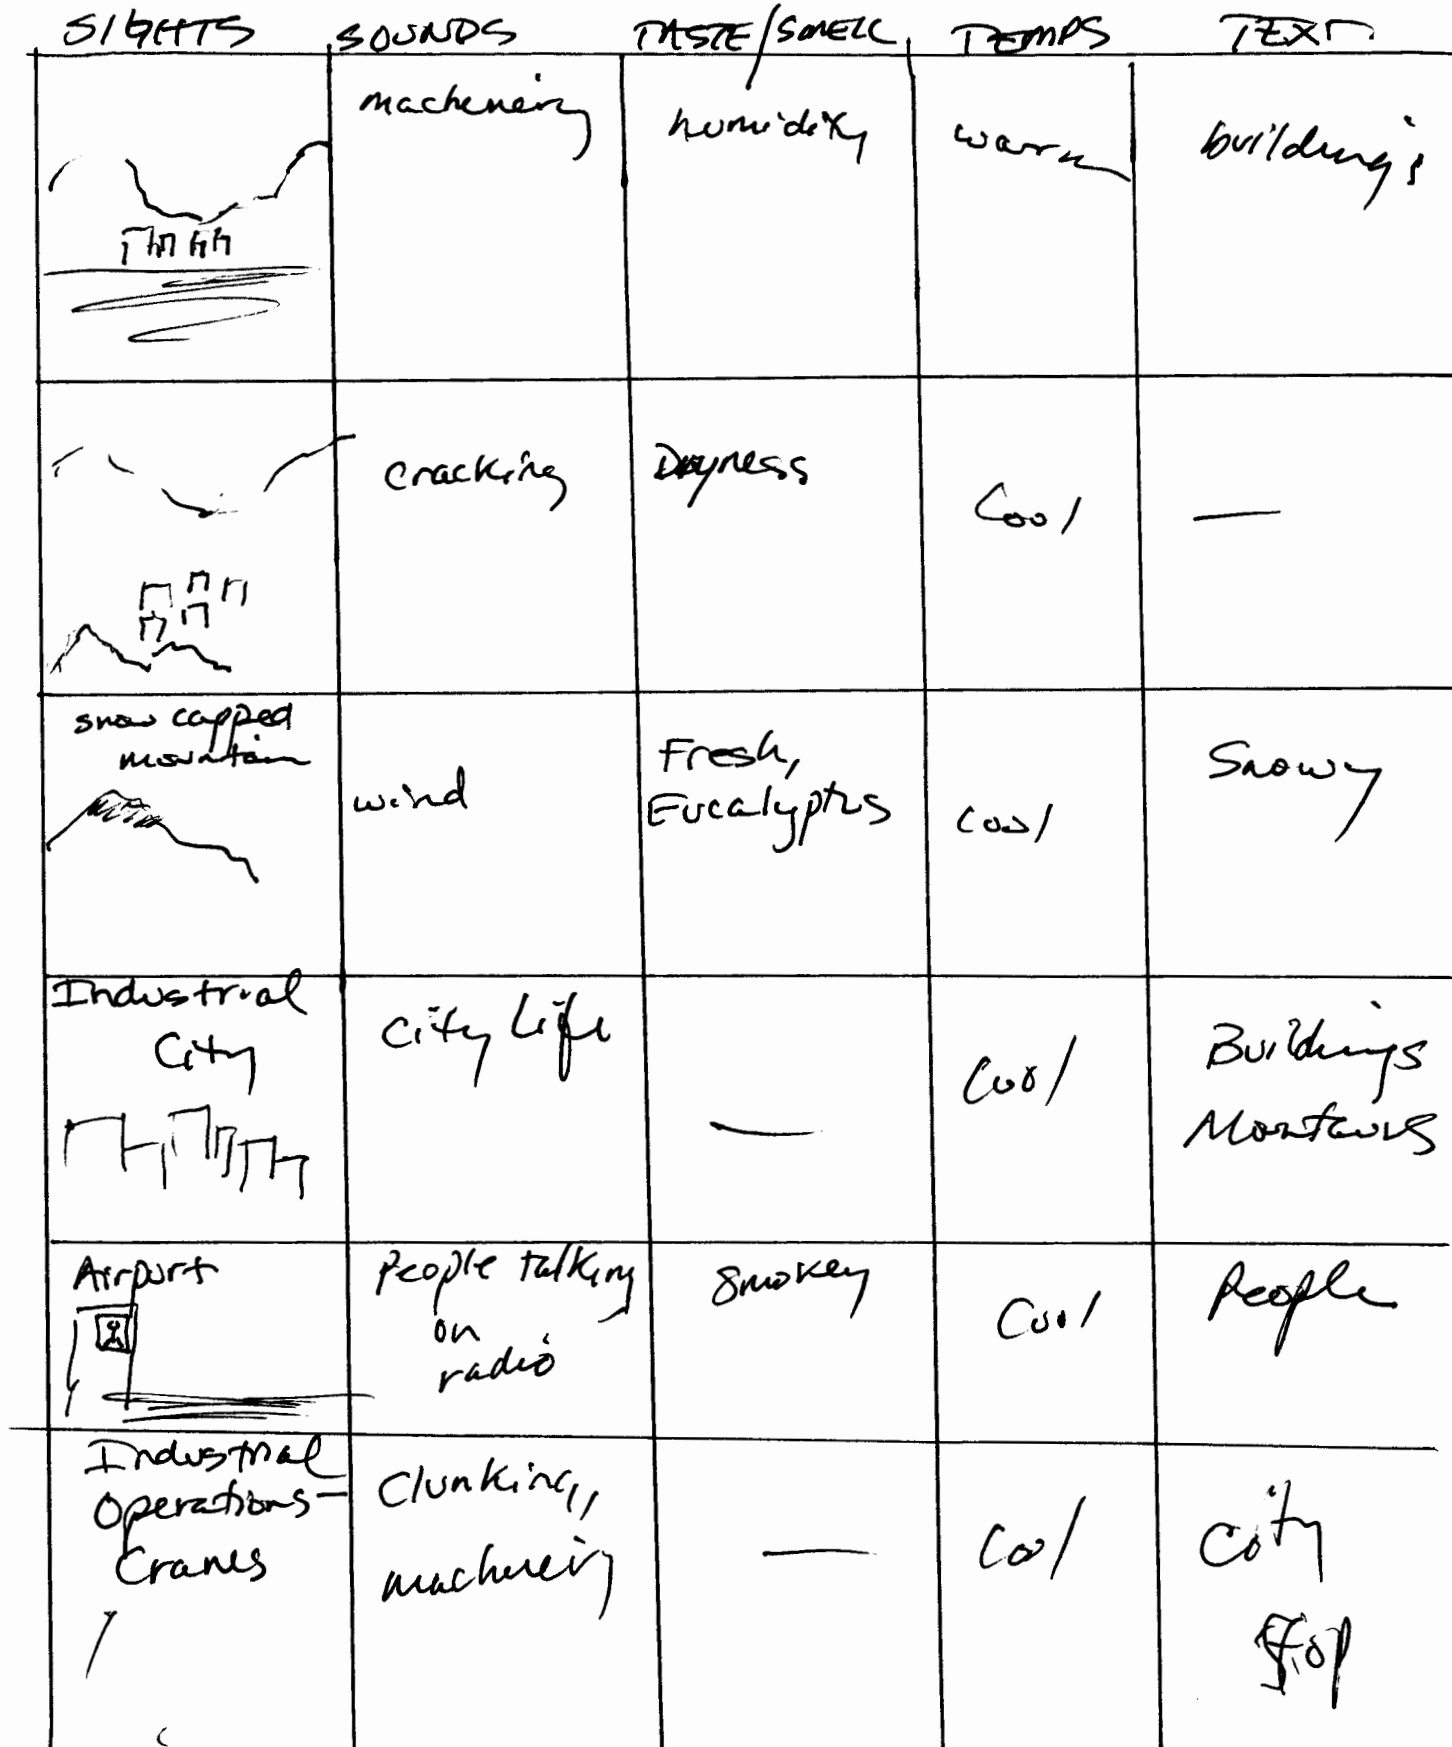 SIGHTS SOUNDS TASTE/SMELL TEMPS TEXT
machinery humidity warm buildings
cracking Dryness Cool —
snow capped
mountain
wind
Fresh,
Eucalyptus
cool
Snowy
Industrial
City
City Life
—
Cool
Buildings
Mountains
Airport
People talking
on
radio
Smokey
Cool
People
Industrial
Operations-
Cranes
Clunking,
machinery
—
Cool
City
Stop